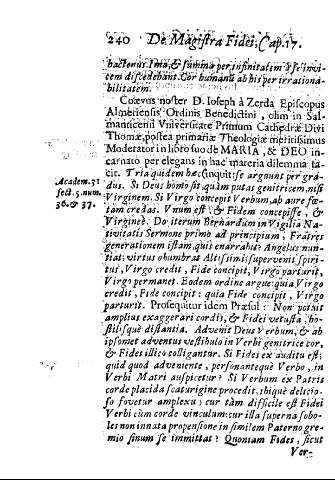 240 De Magistra Fidei, Cap. 17.
hactenus Ima, & summa per infinitatem à se invi-
cem discedebant. Cor humanū ab his per irrationa-
bilitatem.
Coævus noster D. Ioseph à Zerda Episcopus
Almeriensis Ordinis Benedictini, olim in Sal-
manticensi Vniversitatæ Primum Cathedræ Divi
Thomæ, postea primariæ Theologiæ meritissimus
Moderator in libro suo de MARIA, & DEO in-
carnato per elegans in hac materia dilemma ta-
cit. Tria quidem hæc (inquit) se arguunt per gra-
dus. Si Deus homo sit, quàm putas genitricem, nisi
Virginem. Si Virgo concepit Verbum, ab aure fœ-
tam credas. Vnum est, & Fidem concepisse, &
Virgineè. Do iterum Bernardum in Vigilia Na-
tivitatis Sermone primo ad principium, Fratres
generationem istam, quis enarrabit? Angelus nun-
tiat: virtus obumbrat Altissimi: supervenit spiri-
tus, Virgo credit, Fide concipit, Virgo parturit,
Virgo permanet. Eodem ordine argue: quia Virgo
credit, Fide concipit: quia Fide concipit, Virgo
parturit. Prosequitur idem Præsul: Non potuit
amplius exaggerari cordis, & Fidei vetusta, ho-
stilisquè distantia. Advenit Deus Verbum, & ab
ipsomet adventus vestibulo in Verbi genitrice cor,
& Fides illico colligantur. Si Fides ex auditu est;
quid quod adveniente, personantequè Verbo, in
Verbi Matri auspicetur? Si Verbum ex Patris
corde placida scaturigine procedit, ibiquè delicio-
so fovetur amplexu; cur tàm difficile est Fidei
Verbi cùm corde vinculum: cur illa superna sobo-
les non innata propensione in similem Paterno gre-
mio sinum se immittat? Quoniam Fides, sicut
Ver-
Academ. 31
sect. 5. num.
36. & 37.